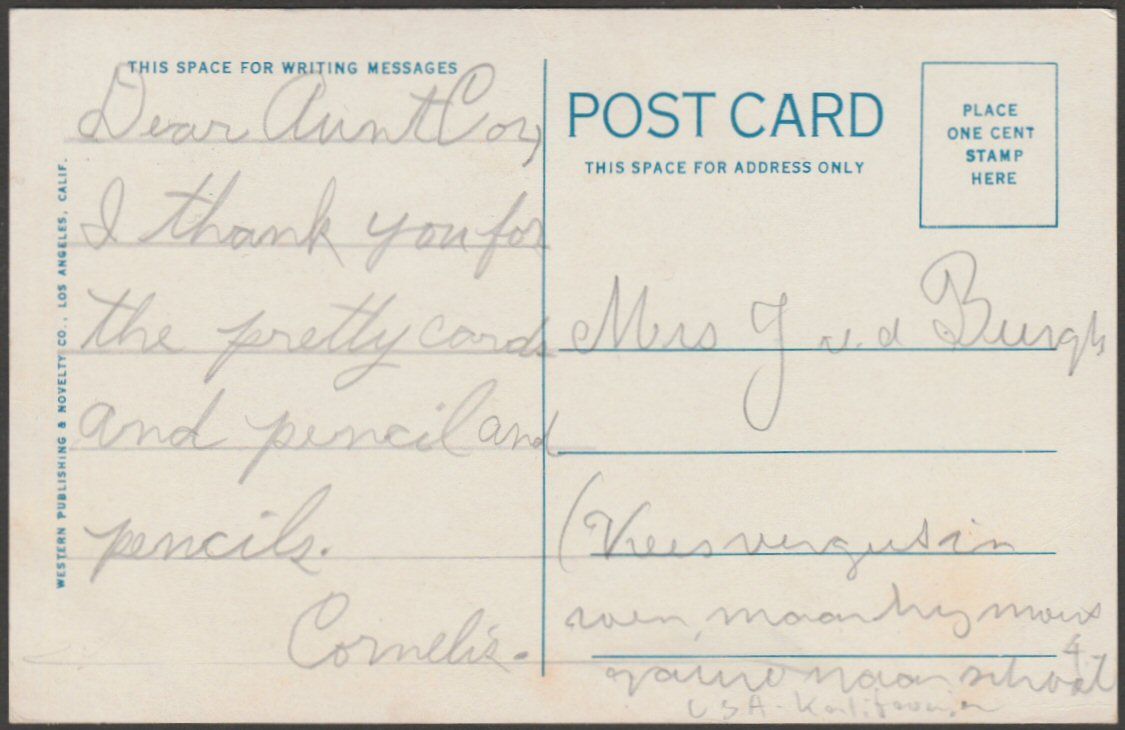 THIS SPACE FOR WRITING MESSAGES
Dear Aunt Cor,
I thank you for
the pretty cards
and pencil and
pencils.
Cornelis.
WESTERN PUBLISHING & NOVELTY CO., LOS ANGELES, CALIF.
POST CARD
THIS SPACE FOR ADDRESS ONLY
PLACE
ONE CENT
STAMP
HERE
Mrs J v.d Burgh
(Kees
maar hy
naar school
4
USA-